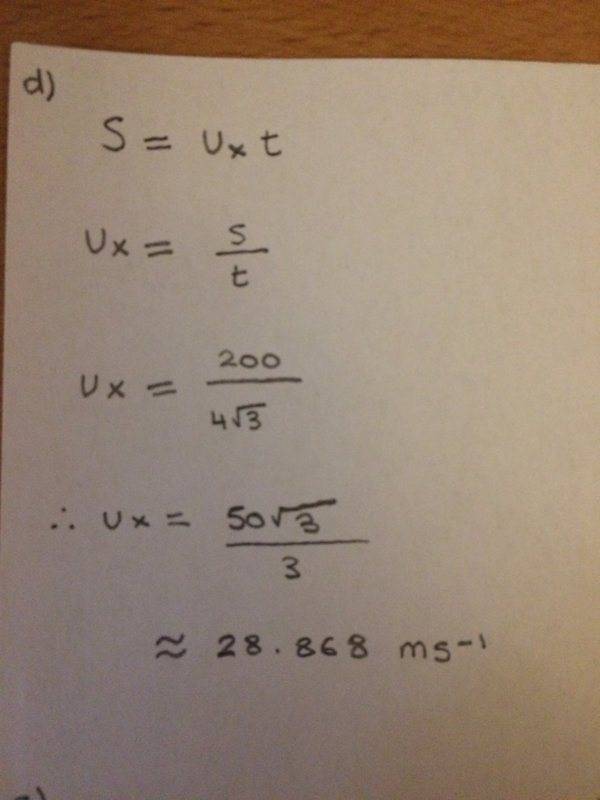 d)
S = Ux t
Ux = S/t
Ux = 200/4√3
∴ Ux = 50√3/3
≈ 28.868 ms⁻¹